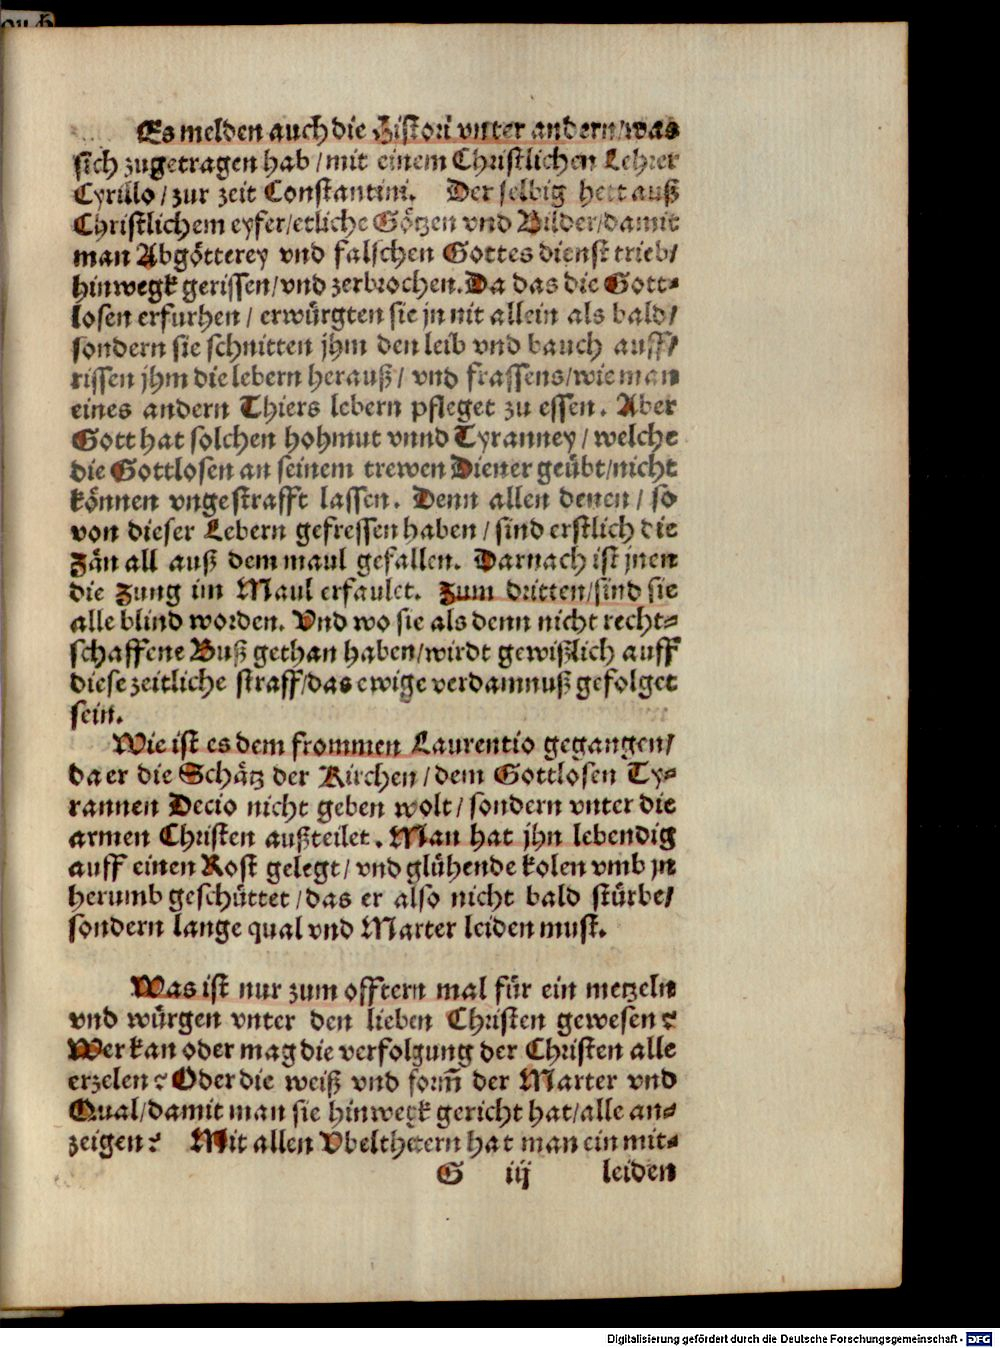 Es melden auch die Histori vnter andern/was
sich zugetragen hab/mit einem Christlichen Lehrer
Cyrillo/zur zeit Constantini. Der selbig hett auß
Christlichem eyfer/etliche Götzen vnd Bilder/damit
man Abgötterey vnd falschen Gottes dienst trieb/
hinwegk gerissen/vnd zerbrochen. Da das die Gott-
losen erfurhen/erwürgten sie jn nit allein als bald/
sondern sie schnitten jhm den leib vnd bauch auff/
rissen jhm die lebern herauß/vnd frassens/wie man
eines andern Thiers lebern pfleget zu essen. Aber
Gott hat solchen hohmut vnnd Tyranney/welche
die Gottlosen an seinem trewen Diener geübt/nicht
können vngestrafft lassen. Denn allen denen/so
von dieser Lebern gefressen haben/sind erstlich die
Zän all auß dem maul gefallen. Darnach ist jnen
die Zung im Maul erfaulet. Zum dritten/sind sie
alle blind worden. Vnd wo sie als denn nicht recht-
schaffene Buß gethan haben/wirdt gewißlich auff
diese zeitliche straff/das ewige verdamnuß gefolget
sein.
Wie ist es dem frommen Laurentio gegangen/
da er die Schätz der Kirchen/dem Gottlosen Ty-
rannen Decio nicht geben wolt/sondern vnter die
armen Christen außteilet. Man hat jhn lebendig
auff einen Rost gelegt/vnd glühende kolen vmb jn
herumb geschüttet/das er also nicht bald stürbe/
sondern lange qual vnd Marter leiden must.
Was ist nur zum offtern mal für ein metzeln
vnd würgen vnter den lieben Christen gewesen?
Wer kan oder mag die verfolgung der Christen alle
erzelen? Oder die weiß vnd form̃ der Marter vnd
Qual/damit man sie hinwegk gericht hat/alle an-
zeigen? Mit allen Vbelthetern hat man ein mit-
G iij leiden
Digitalisierung gefördert durch die Deutsche Forschungsgemeinschaft - DFG